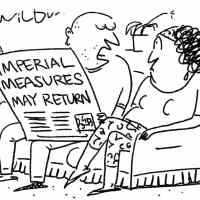 WiLBur
IMPERIAL
MEASURES
MAY RETURN